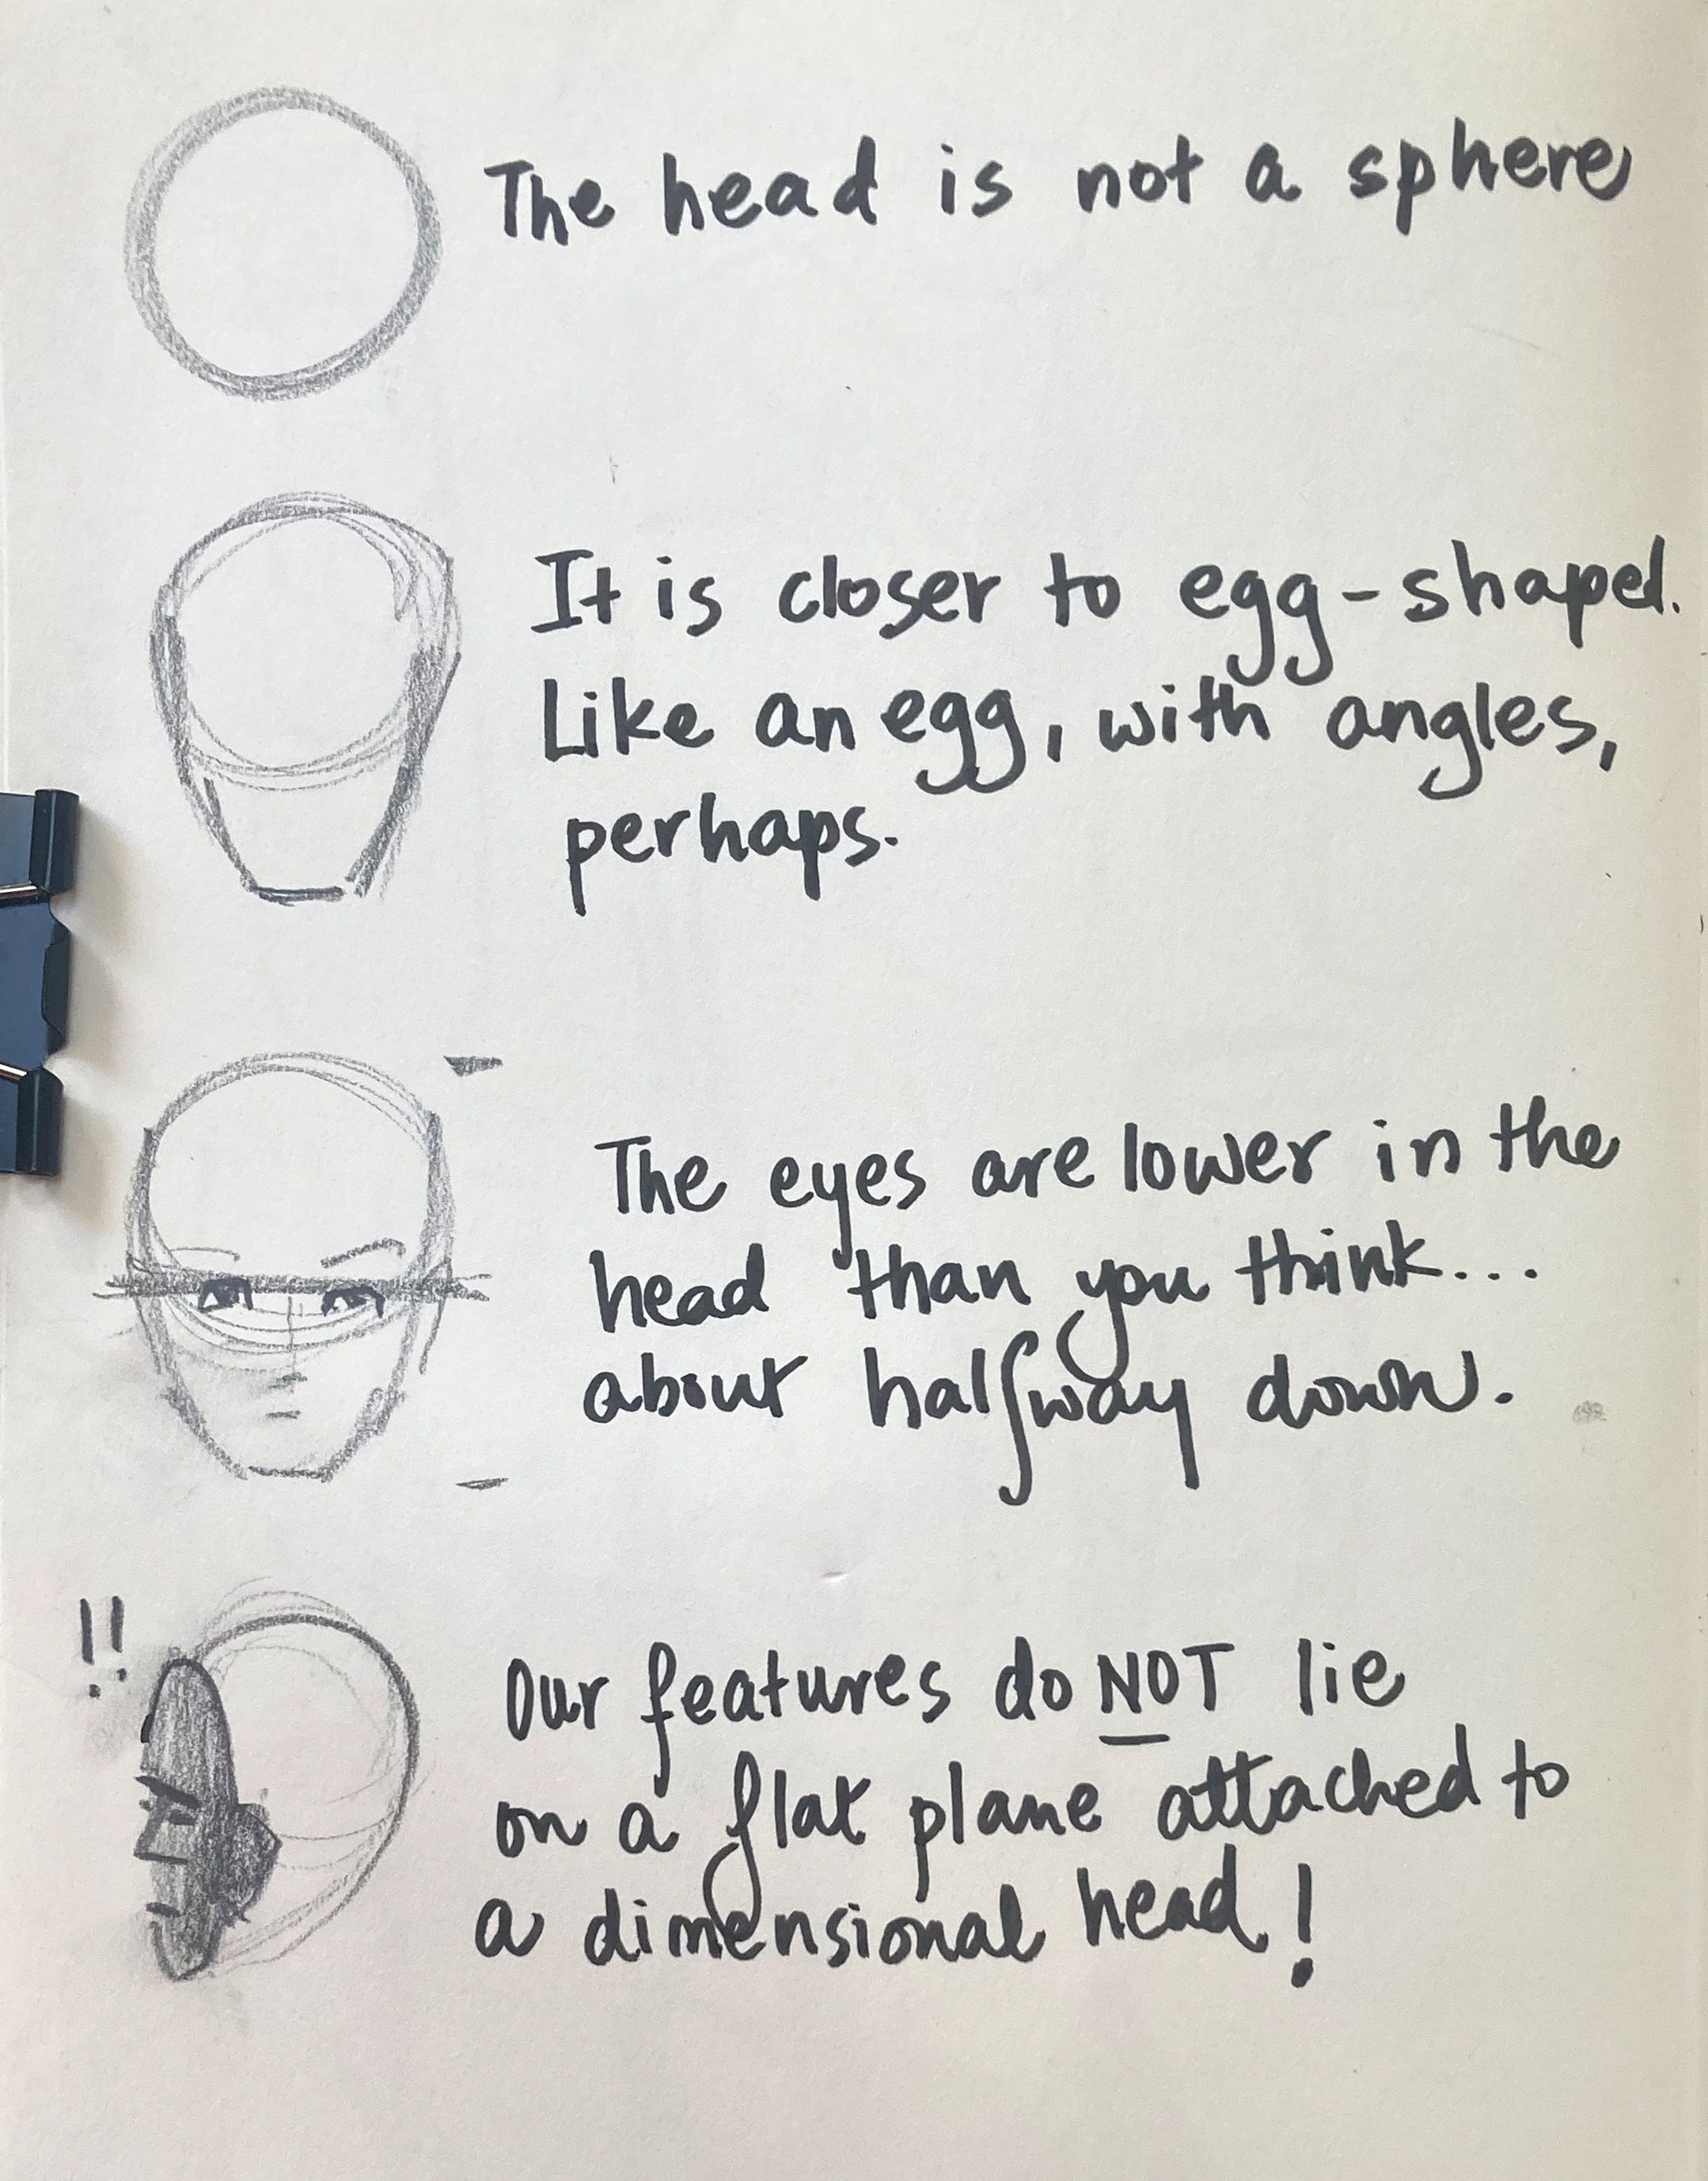 The head is not a sphere
It is closer to egg-shaped.
Like an egg, with angles,
perhaps.
The eyes are lower in the
head than you think...
about halfway down.
!!
Our features do NOT lie
on a flat plane attached to
a dimensional head!